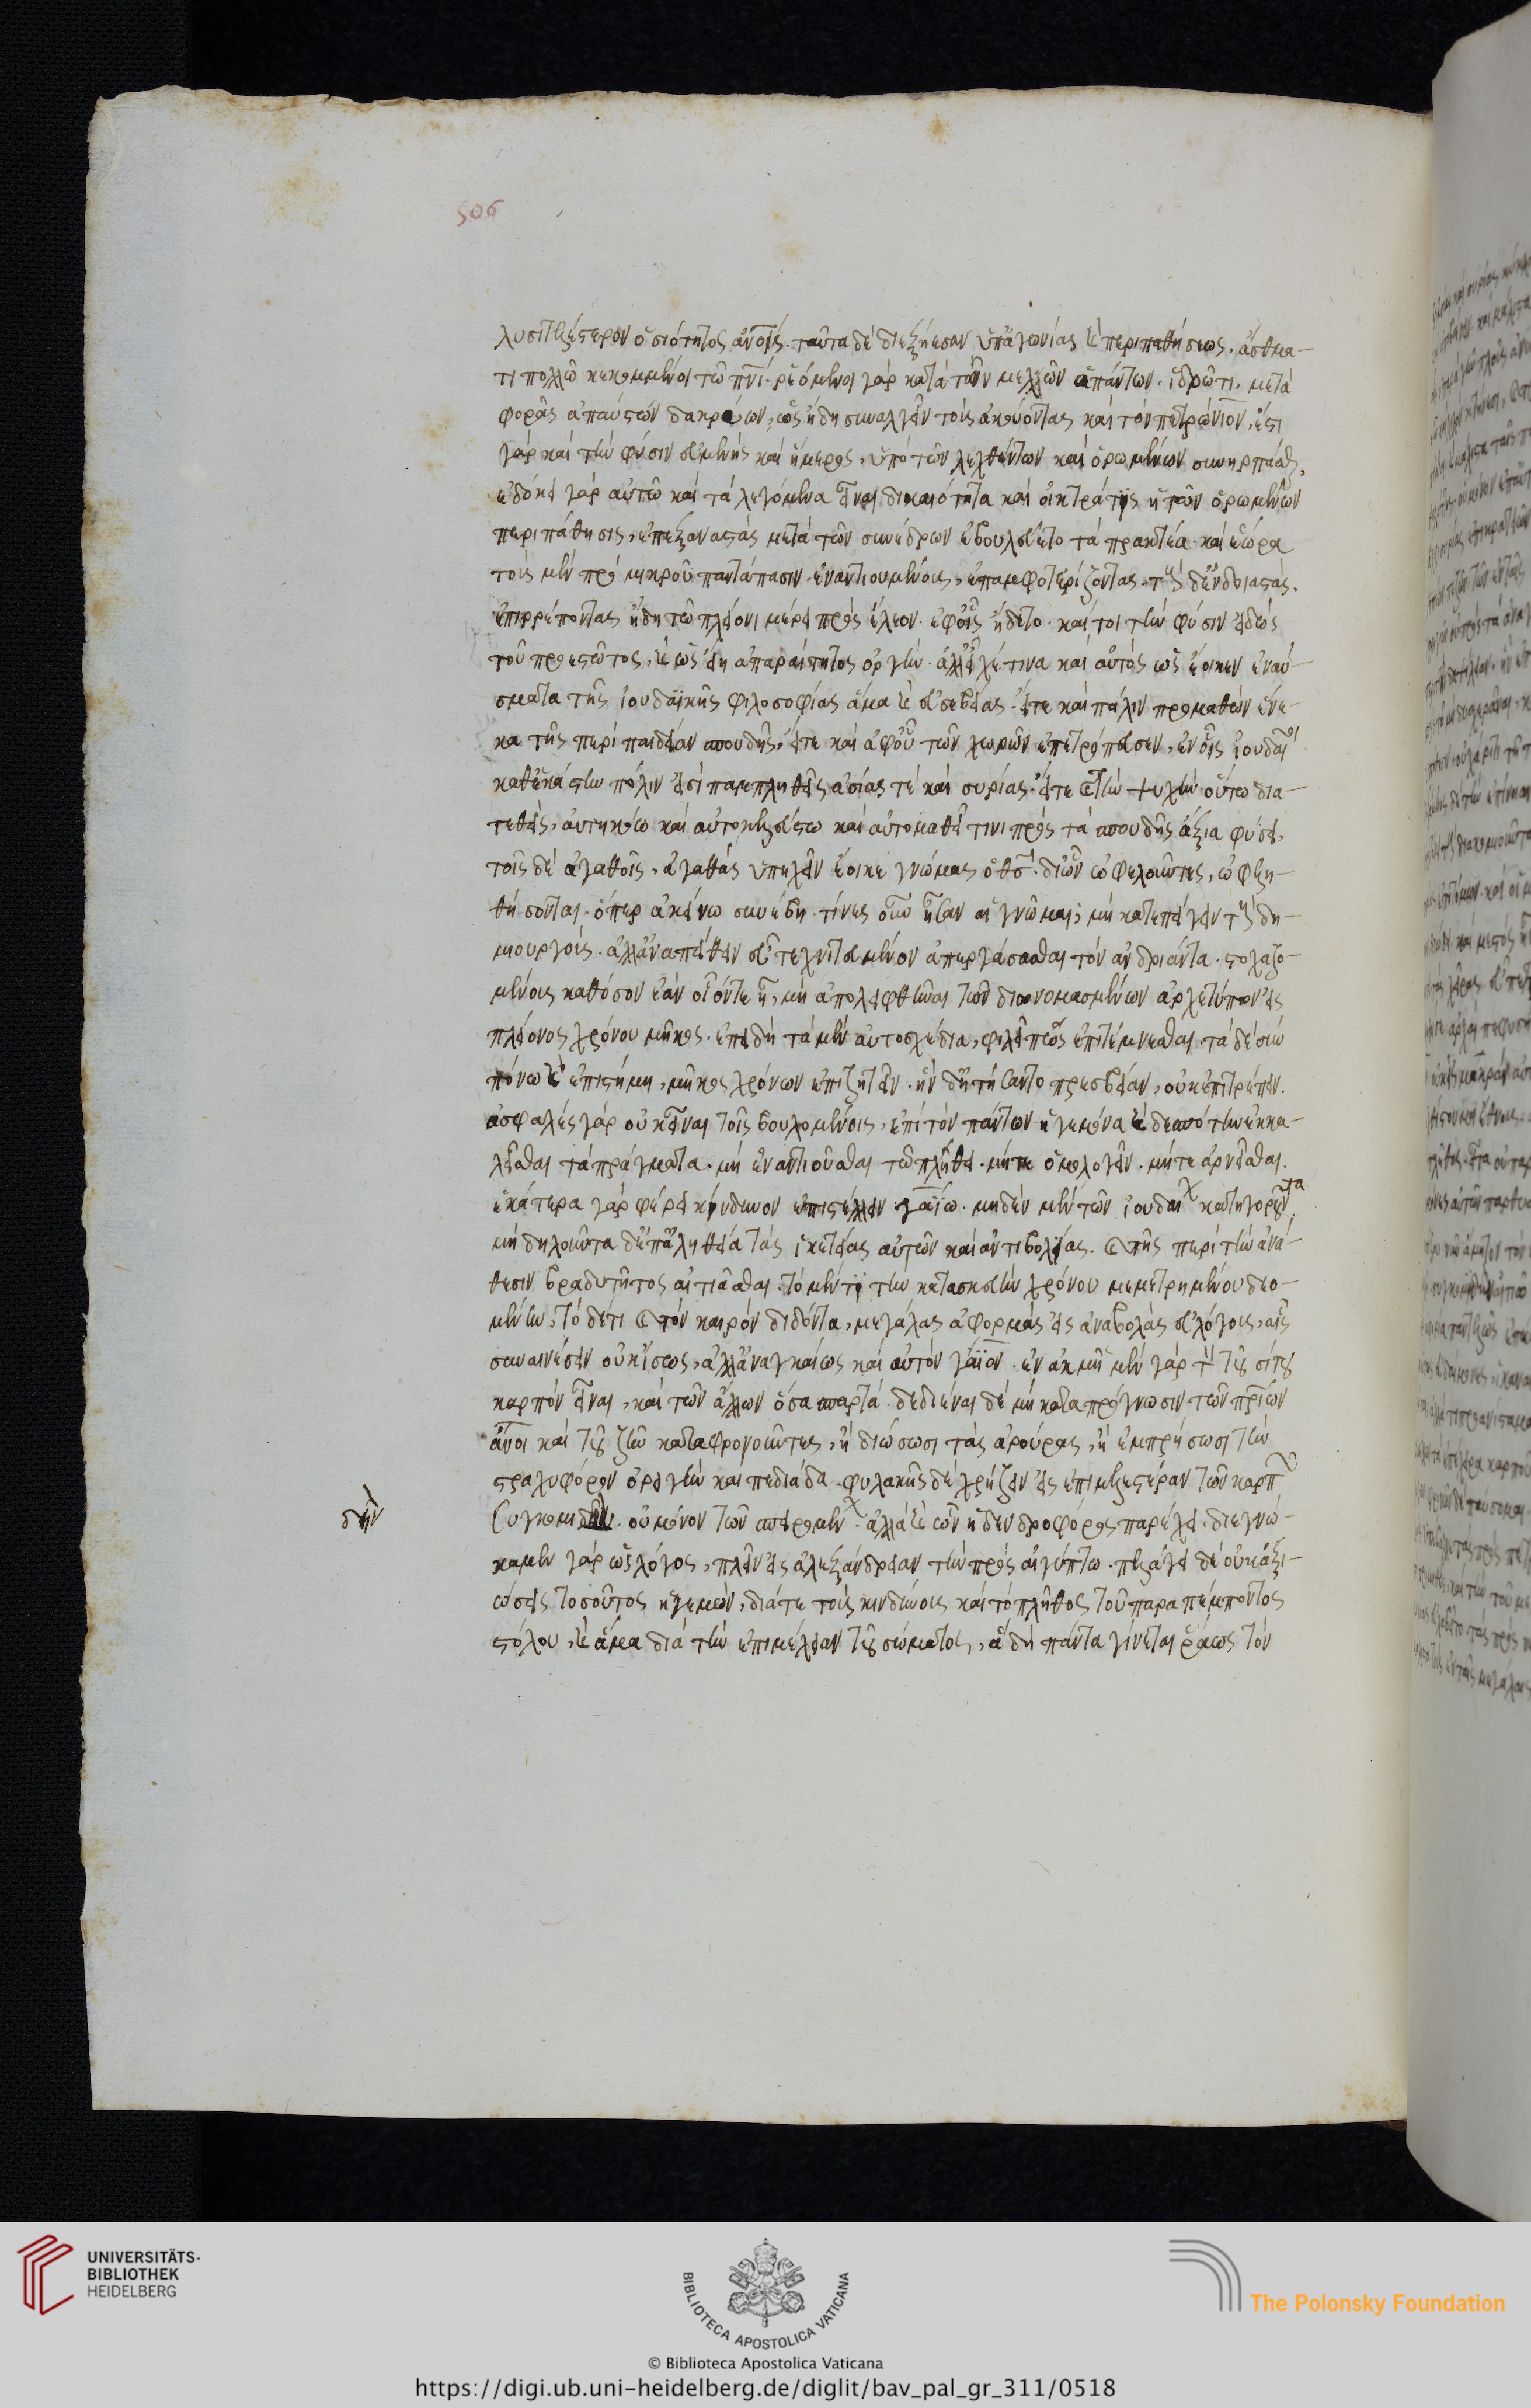 506
λυσιτελέστερον ὁσιότητος ἀνοις. ταῦτα δὲ διεξήεσαν ὑπ' ἀγωνίας καὶ περιπαθήσεως. ἄσθμα-
τι πολλῷ κεκομμένῳ τῷ πνι. ῥεόμενοι γὰρ κατὰ τῶν μελῶν ἁπάντων ἱδρῶτι. μετὰ
φορᾶς ἀπαύστων δακρύων, ὡς ἤδη συναλγεῖν τοὺς ἀκούοντας καὶ τὸν πετρώνιον, ἔστι
γὰρ καὶ τὴν φύσιν εὐμενὴς καὶ ἥμερος, ὑπὸ τῶν λεχθέντων καὶ ὁρωμένων συνηρπάσθαι,
ἐδόκει γὰρ αὐτῷ καὶ τὰ λεγόμενα εἶναι δικαιότατα καὶ οἰκτρά τις ἡ τῶν ὁρωμένων
περιπάθησις, ἐπεξαναστὰς μετὰ τῶν συνέδρων ἐβουλεύετο τὰ πρακτέα. καὶ ἑώρα
τοὺς μὲν πρὸ μικροῦ παντάπασιν ἐναντιουμένους, ἐπαμφοτερίζοντας. τοὺς δ' ἐνδοιαστάς,
ἐπιρρέποντας ἤδη τῷ πλείονι μέρει πρὸς ἔλεον. ἐφ' οἷς ἥδετο. καί τοι τὴν φύσιν εἰδὼς
τοῦ προεστῶτος, καὶ ὡς ἔστιν ἀπαραίτητος ὀργήν. ἀλλ' εἶχέ τινα καὶ αὐτὸς ὡς ἔοικεν ἐναύ-
σματα τῆς ἰουδαϊκῆς φιλοσοφίας ἅμα καὶ εὐσεβείας. εἴτε καὶ πάλιν προμαθὼν ἕνε-
κα τῆς περὶ παιδείαν σπουδῆς, εἴτε καὶ ἀφ' οὗ τῶν χωρῶν ἐπετρόπευσεν, ἐν οἷς ἰουδαῖοι
καθ' ἑκάστην πόλιν εἰσὶ παμπληθεῖς ἀσίας τὲ καὶ συρίας. εἴτε καὶ τὴν ψυχὴν οὕτω δια-
τεθείς, αὐτηκόω καὶ αὐτοκελεύστω καὶ αὐτομαθεῖ τινι πρὸς τὰ σπουδῆς ἄξια φύσει,
τοῖς δὲ ἀγαθοῖς, ἀγαθὰς ὑπηχεῖν ἔοικε γνώμας ὁ θσ. δι' ὧν ὠφελοῦντες, ὠφελη-
θήσονται. ὅπερ ἀκείνω συνέβη. τίνες οὖν ἦσαν αἱ γνῶμαι; μὴ κατεπείγειν τοὺς δη-
μιουργούς. ἀλλ' ἀναπείθειν εὖ τεχνιτευμένον ἀπεργάσασθαι τὸν ἀνδριάντα. στοχαζο-
μένοις καθόσον ἐὰν οἷόντε ᾖ, μὴ ἀπολειφθῆναι τῶν διωνομασμένων ἀρχετύπων εἰς
πλείονος χρόνου μῆκος. ἐπειδὴ τὰ μὲν αὐτοσχέδια, φιλεῖ πως ἐπιτέμνεσθαι. τὰ δὲ σὺν
πόνω καὶ ἐπιστήμη, μῆκος χρόνων ἐπιζητεῖν. ἣν δ' ᾐτήσαντο πρεσβείαν, οὐκ ἐπιτρέπειν.
ἀσφαλὲς γὰρ οὐκ εἶναι τοῖς βουλομένοις, ἐπὶ τὸν πάντων ἡγεμόνα καὶ δεσπότην ἐκκα-
λεῖσθαι τὰ πράγματα. μὴ ἐναντιοῦσθαι τῷ πλήθει. μήτε ὁμολογεῖν. μήτε ἀρνεῖσθαι.
ἑκάτερα γὰρ φέρει κίνδυνον ἐπιστέλλειν γαΐω. μηδὲν μὲν τῶν ἰουδαίων κατηγοροῦντα
μὴ δηλοῦντα δ' ἐπ' ἀληθεία τὰς ἱκετείας αὐτῶν καὶ ἀντιβολίας. καὶ τῆς περὶ τὴν ἀνά-
θεσιν βραδυτῆτος αἰτιᾶσθαι. τὸ μέν τι τὴν κατασκευὴν χρόνου μεμετρημένου δεο-
μένην, τὸ δέ τι καὶ τὸν καιρὸν διδόντα, μεγάλας ἀφορμὰς εἰς ἀναβολὰς εὐλόγους, αἷς
συναινέσειν οὐκ ἴσως, ἀλλ' ἀναγκαίως καὶ αὐτὸν γάϊον. ἐν ἀκμῇ μὲν γὰρ τὸν τοῦ σίτου
καρπὸν εἶναι, καὶ τῶν ἄλλων ὅσα σπαρτά. δεδιέναι δὲ μὴ κατὰ πρόγνωσιν τῶν πρίων
ἄνοι καὶ τοῦ ζῆν καταφρονοῦντες, ἢ διώσωσι τὰς ἀρούρας, ἢ ἐμπρήσωσι τὴν
σταχυφόρον ὀρεινὴν καὶ πεδιάδα. φυλακῆς δὲ χρῄζειν εἰς ἐπιμελεστέραν τῶν καρπῶν
δὴν
συγκομιδὴν. οὐ μόνον τῶν σπειρομένων. ἀλλὰ καὶ ὧν ἡ δενδροφόρος παρέχει. διεγνώ-
καμεν γὰρ ὡς λόγος, πλεῖν εἰς ἀλεξάνδρειαν τὴν πρὸς αἰγύπτω. πελάγει δὲ οὐκ ἀξι-
ώσει τοσοῦτος ἡγεμών, διά τε τοὺς κινδύνους καὶ τὸ πλῆθος τοῦ παραπέμποντος
στόλου, καὶ ἅμα διὰ τὴν ἐπιμέλειαν τοῦ σώματος, ἃ δὴ πάντα γίνεται ῥᾴως τὸν
UNIVERSITÄTS-
BIBLIOTHEK
HEIDELBERG
BIBLIOTECA APOSTOLICA VATICANA
The Polonsky Foundation
© Biblioteca Apostolica Vaticana
https://digi.ub.uni-heidelberg.de/diglit/bav_pal_gr_311/0518